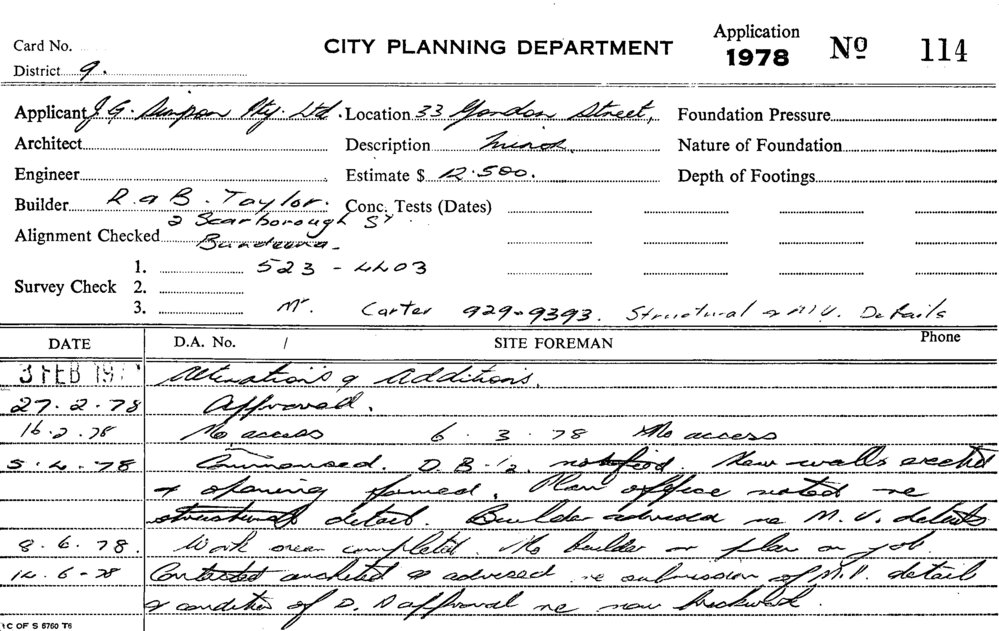 Card No.
CITY PLANNING DEPARTMENT
Application
1978
No 114
District 9.
Applicant J. G. Simpson Pty. Ltd. Location 33 Gordon Street, Foundation Pressure
Architect Description Minor. Nature of Foundation
Engineer Estimate $ 12.500. Depth of Footings
Builder R. & B. Taylor. Conc. Tests (Dates)
2 Scarborough St
Alignment Checked Bundeena.
1. 523-4403
Survey Check 2.
3. Mr. Carter 929-9393. Structural & M.V. Details
DATE D.A. No. / SITE FOREMAN Phone
3 FEB 197
Alterations & Additions.
27.2.78 Approved.
16.2.78 No access 6.3.78 No access
5.4.78 Commenced. D.B. notified. New walls erected
& opening formed. Plan office noted re
structural detail. Builder advised re M.V. details
8.6.78. Work completed. No builder or plan on job.
14-6-78 Contacted architect & advised re submission of M.V. detail
& condition of D. approval re new brickwork.
C OF S 5760 T6